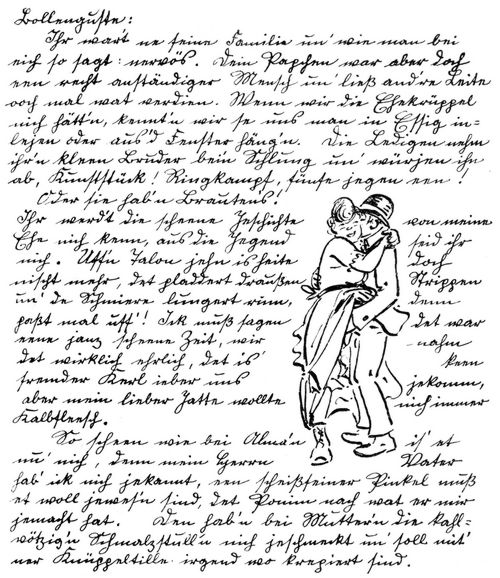 Bollenguste:
Ihr war't ne feine Familie un' wie man bei
eich so sagt: nervös. Dein Papchen war aber doch
een recht anständiger Mensch un' ließ and're Leite
ooch mal wat verdien. Wenn wir die Ehekrüppel
nich hätt'n, kennt'n wir se uns man in Essig in-
lejen oder aus'd Fenster häng'n. Die Ledigen nehm
ihr'n kleen Bruder bein Schling un' würjen ihn
ab, Kunststück! Ringkampf, fünfe jegen een!
Oder sie hab'n Brautens!
Ihr werd't die scheene Jeschichte von meine
Ehe nich kenn, aus die Jegend seid ihr
nich. Uff'n Talon jehn is heite doch
nischt mehr, det pladdert draußen Strippen
un' de Schmiere lungert rum, denn
paßt mal uff! Ick muß sagen det war
eene janz scheene Zeit, wir nahm
det wirklich ehrlich, det is' keen
fremder Kerl ieber uns jekomm,
aber mein lieber Jatte wollte nich immer
Kalbfleesch.
So scheen wie bei Alma'n is' et
nu' nich, denn mein Herrn Vater
hab' ick nich jekannt, een scheißfeiner Pinkel muß
et woll jewes'n sind, det Ponim nach wat er mir
jemacht hat. Den hab'n bei Muttern die kahl-
vötzig'n Schmalzstull'n nich jeschmeckt un' soll mit'
ner Knüppeltille irgend wo krepiert sind.